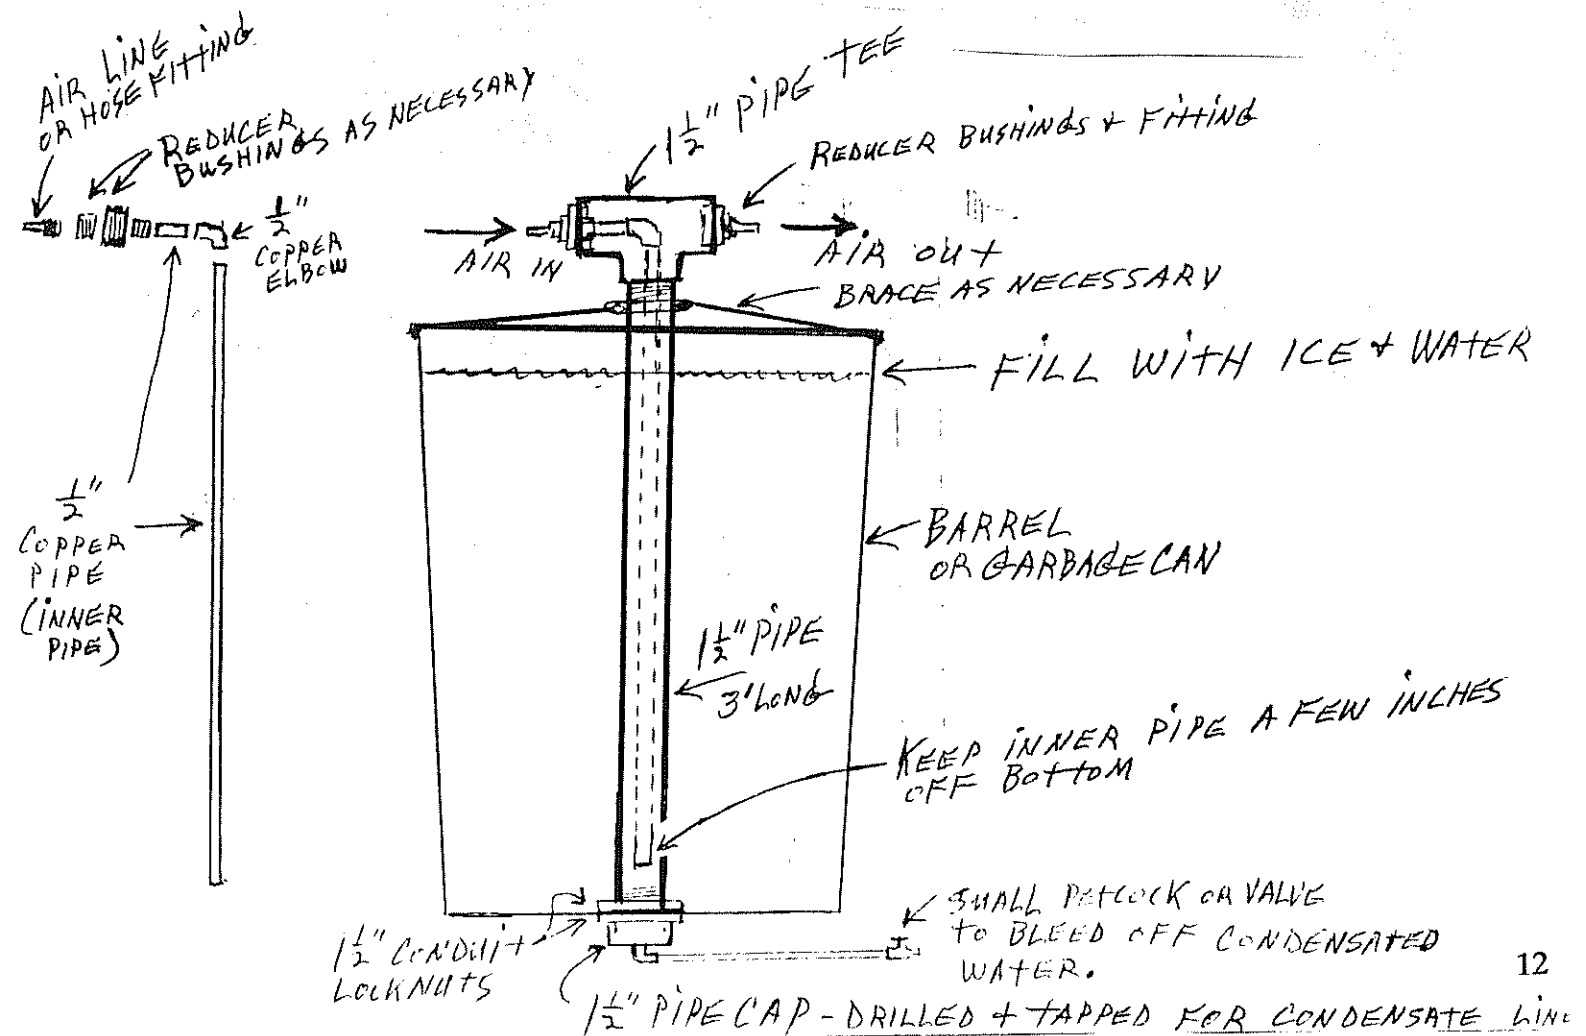 AIR LINE
OR HOSE FITTING
REDUCER
BUSHINGS AS NECESSARY
1/2"
COPPER
ELBOW
1 1/2" PIPE TEE
REDUCER BUSHINGS & FITTING
AIR IN
AIR OUT
BRACE AS NECESSARY
FILL WITH ICE & WATER
1/2"
COPPER
PIPE
(INNER
PIPE)
BARREL
OR GARBAGE CAN
1 1/2" PIPE
3' LONG
KEEP INNER PIPE A FEW INCHES
OFF BOTTOM
1 1/2" CONDUIT
LOCKNUTS
SMALL PETCOCK OR VALVE
TO BLEED OFF CONDENSATED
WATER.
1 1/2" PIPE CAP - DRILLED & TAPPED FOR CONDENSATE LINE
12